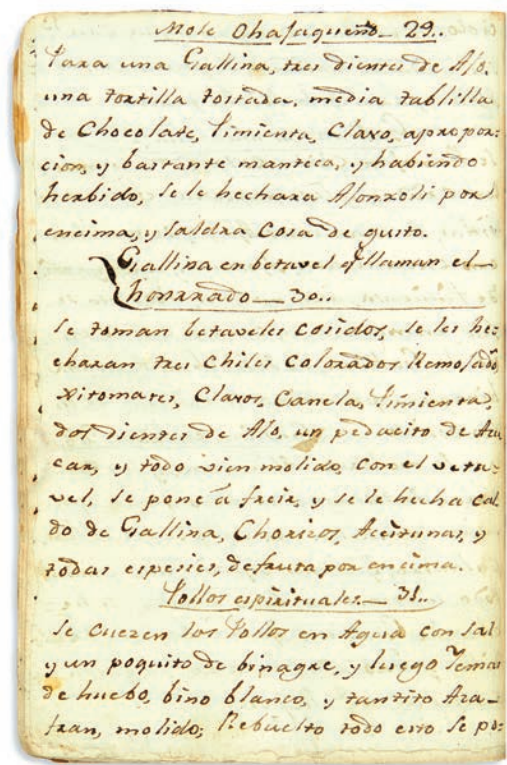 Mole Ohafaqueño 29..
Para una Gallina, tres dientes de Ajo.
una tortilla tostada, media tablilla
de Chocolate, Pimienta, Clavo, apropor=
cion, y bastante manteca, y habiendo
herbido, se le hechara Ajonxoli por
encima, y saldra cosa de gusto.
Gallina en betavel q.e llaman el
honrrado 30..
Se toman betaveles cosidos, se les he=
charan tres Chiles Colorados Remojados,
xitomates, Clavos, Canela, Pimienta,
dos dientes de Ajo, un pedacito de Azu
car, y todo vien molido, con el veta=
vel, se pone á freir, y se le hecha cal
do de Gallina, Chorizos, Aceitunas, y
todas especies, de fruta por encima.
Pollos espirituales 31..
Se cuezen los Pollos en Agua con sal
y un poquito de binagre, y luego Yemas
de huebo, bino blanco, y tantito Aza=
fran, molido; Rebuelto todo esto se po=